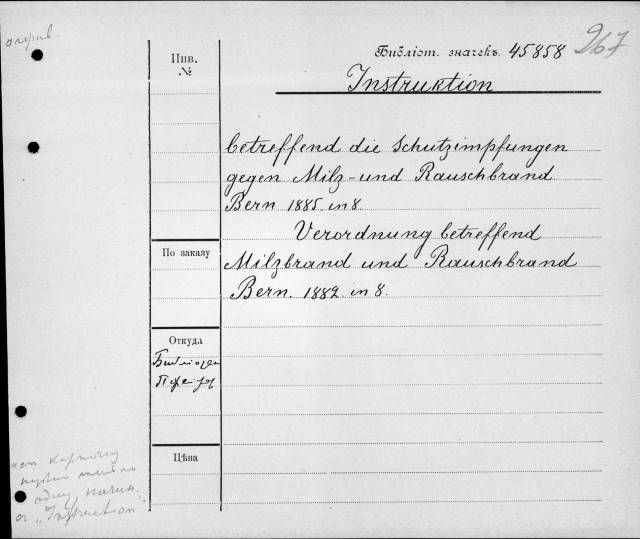 Библіот. значекъ. 45858
967
Инв.
№
Instruktion
betreffend die Schutzimpfungen
gegen Milz-und Rauschbrand
Bern 1885. in 8.
Verordnung betreffend
Milzbrand und Rauschbrand
Bern. 1882. in 8.
По заказу
Откуда
Цѣна
"Instruction